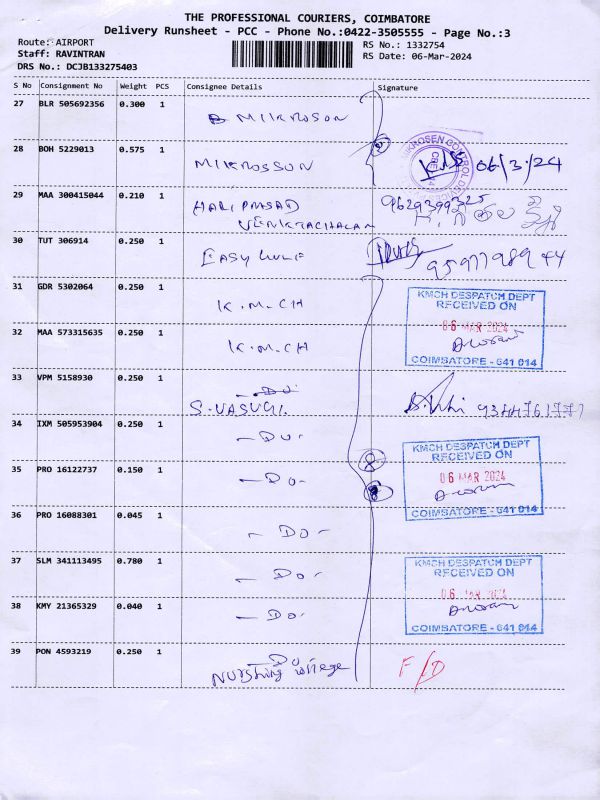 THE PROFESSIONAL COURIERS, COIMBATORE
Delivery Runsheet - PCC - Phone No.:0422-3505555 - Page No.:3
Route: AIRPORT
RS No.: 1332754
Staff: RAVINTRAN
RS Date: 06-Mar-2024
DRS No.: DCJB133275403
S No Consignment No Weight PCS Consignee Details Signature
27 BLR 505692356 0.300 1 MIKROSON
28 BOH 5229013 0.575 1 MIKROSSON 06/3/24
29 MAA 300415044 0.210 1 HARI PRASAD 9629399325
VENKTACHALAM
30 TUT 306914 0.250 1 EASY 9597798944
31 GDR 5302064 0.250 1 K.M.CH
KMCH DESPATCH DEPT
RECEIVED ON
06 MAR 2024
COIMBATORE - 641 014
32 MAA 573315635 0.250 1 K.M.CH
33 VPM 5158930 0.250 1 S.VASUGI.
34 IXM 505953904 0.250 1 - Do -
KMCH DESPATCH DEPT
RECEIVED ON
06 MAR 2024
COIMBATORE - 641 014
35 PRO 16122737 0.150 1 - Do -
36 PRO 16088301 0.045 1 - Do -
37 SLM 341113495 0.780 1 - Do -
KMCH DESPATCH DEPT
RECEIVED ON
06 MAR 2024
COIMBATORE - 641 014
38 KMY 21365329 0.040 1 - Do -
39 PON 4593219 0.250 1 - Do - F/D